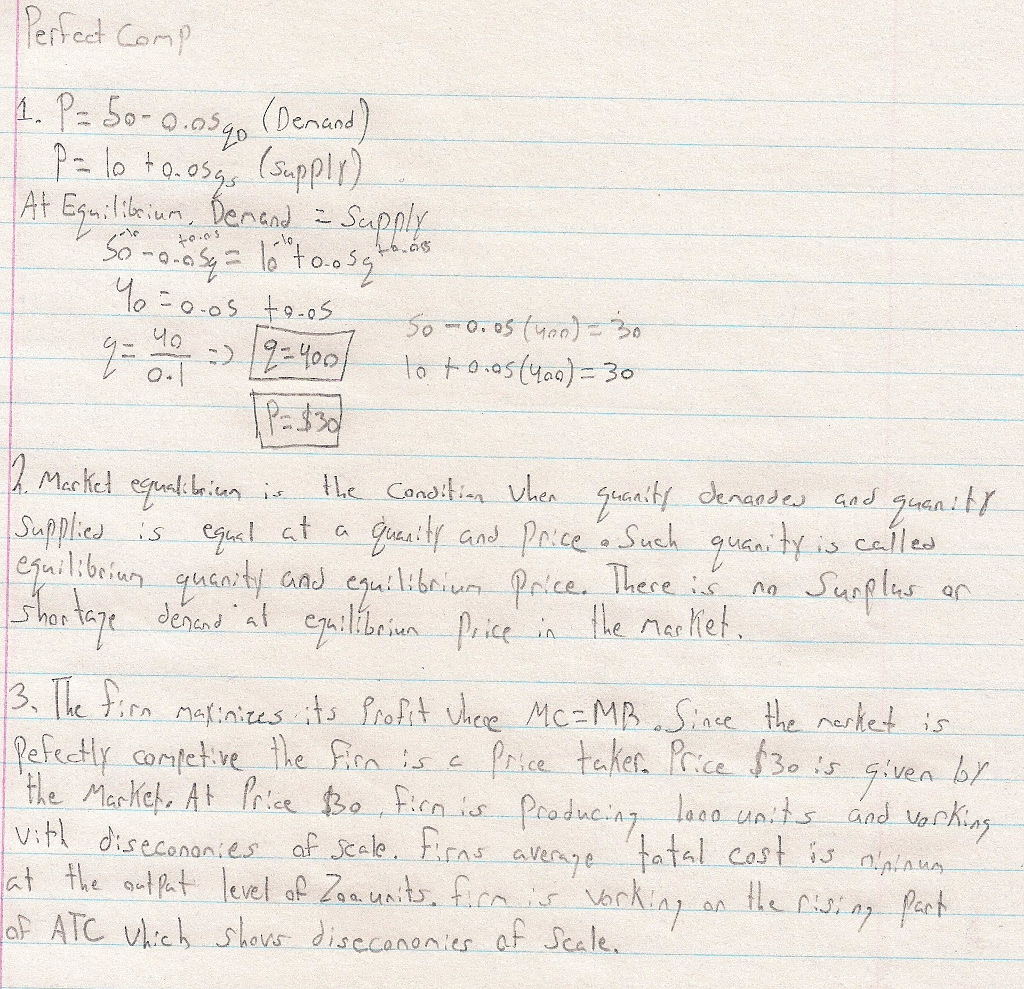 Perfect Comp
1. P= 50-0.05qD (Demand)
P= 10 +0.05qs (supply)
At Equilibrium, Demand = Supply
50-10 -0.05q+0.05 = 10-10 +0.05q+0.05
40 = 0.05 +0.05
q= 40/0.1 => q=400
50 -0.05 (400) = 30
10 +0.05(400) = 30
P=$30
2. Market equalibrium is the condition when quanity demanded and quanity
supplied is equal at a quanity and price. Such quanity is called
equilibrium quanity and equilibrium price. There is no Surplus or
shortage demand at equilibrium price in the market.
3. The firm maximizes its profit where MC=MB. Since the market is
Pefectly competive the firm is a price taker. Price $30 is given by
the Market. At Price $30, firm is producing 1000 units and working
with diseconomies of scale. Firms average total cost is mininum
at the output level of 700 units. firm is working on the rising part
of ATC which shows diseconomies of scale.